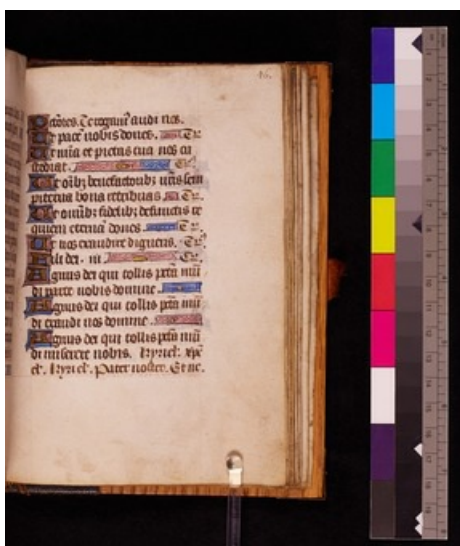 ctores. Te rogamus audi nos.
Ut pacē nobis dones. Te r̄.
Ut mīa et pietas tua nos cu
stodiat. Te r̄.
Ut oībꝫ benefactoribꝫ nr̄is sem
piterna bona retribuas Te r̄.
Ut omībꝫ fidelibꝫ defunctis re
quiem eternā dones. Te r̄.
Ut nos exaudire digneris. Te r̄.
Fili dei. Te r̄.
Agnus dei qui tollis pctā mū
di parce nobis domine.
Agnus dei qui tollis pctā mū
di exaudi nos domine.
Agnus dei qui tollis pctā mū
di miserere nobis. Kyriel. xpē
el. Kyriel. Pater noster. Et ne.